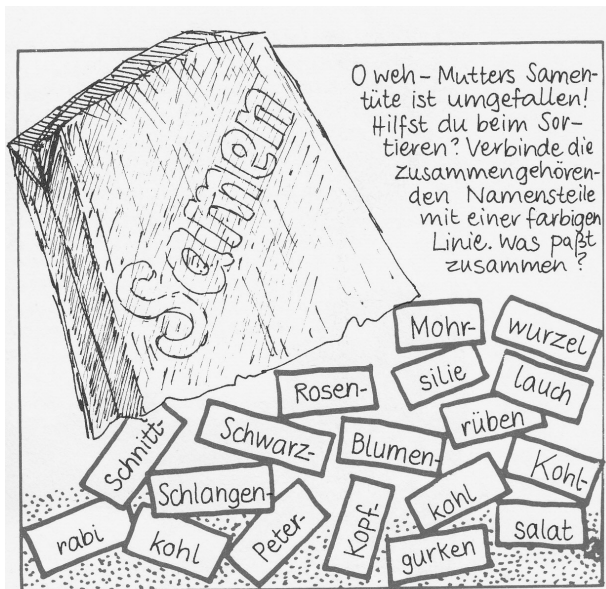 Samen
O weh - Mutters Samen-
tüte ist umgefallen!
Hilfst du beim Sor-
tieren? Verbinde die
zusammengehören-
den Namensteile
mit einer farbigen
Linie. Was paßt
zusammen?
Mohr-
wurzel
silie
lauch
Rosen-
rüben
Schnitt-
Schwarz-
Blumen-
Kohl-
Schlangen-
kohl
rabi
kohl
Peter-
Kopf-
gurken
salat